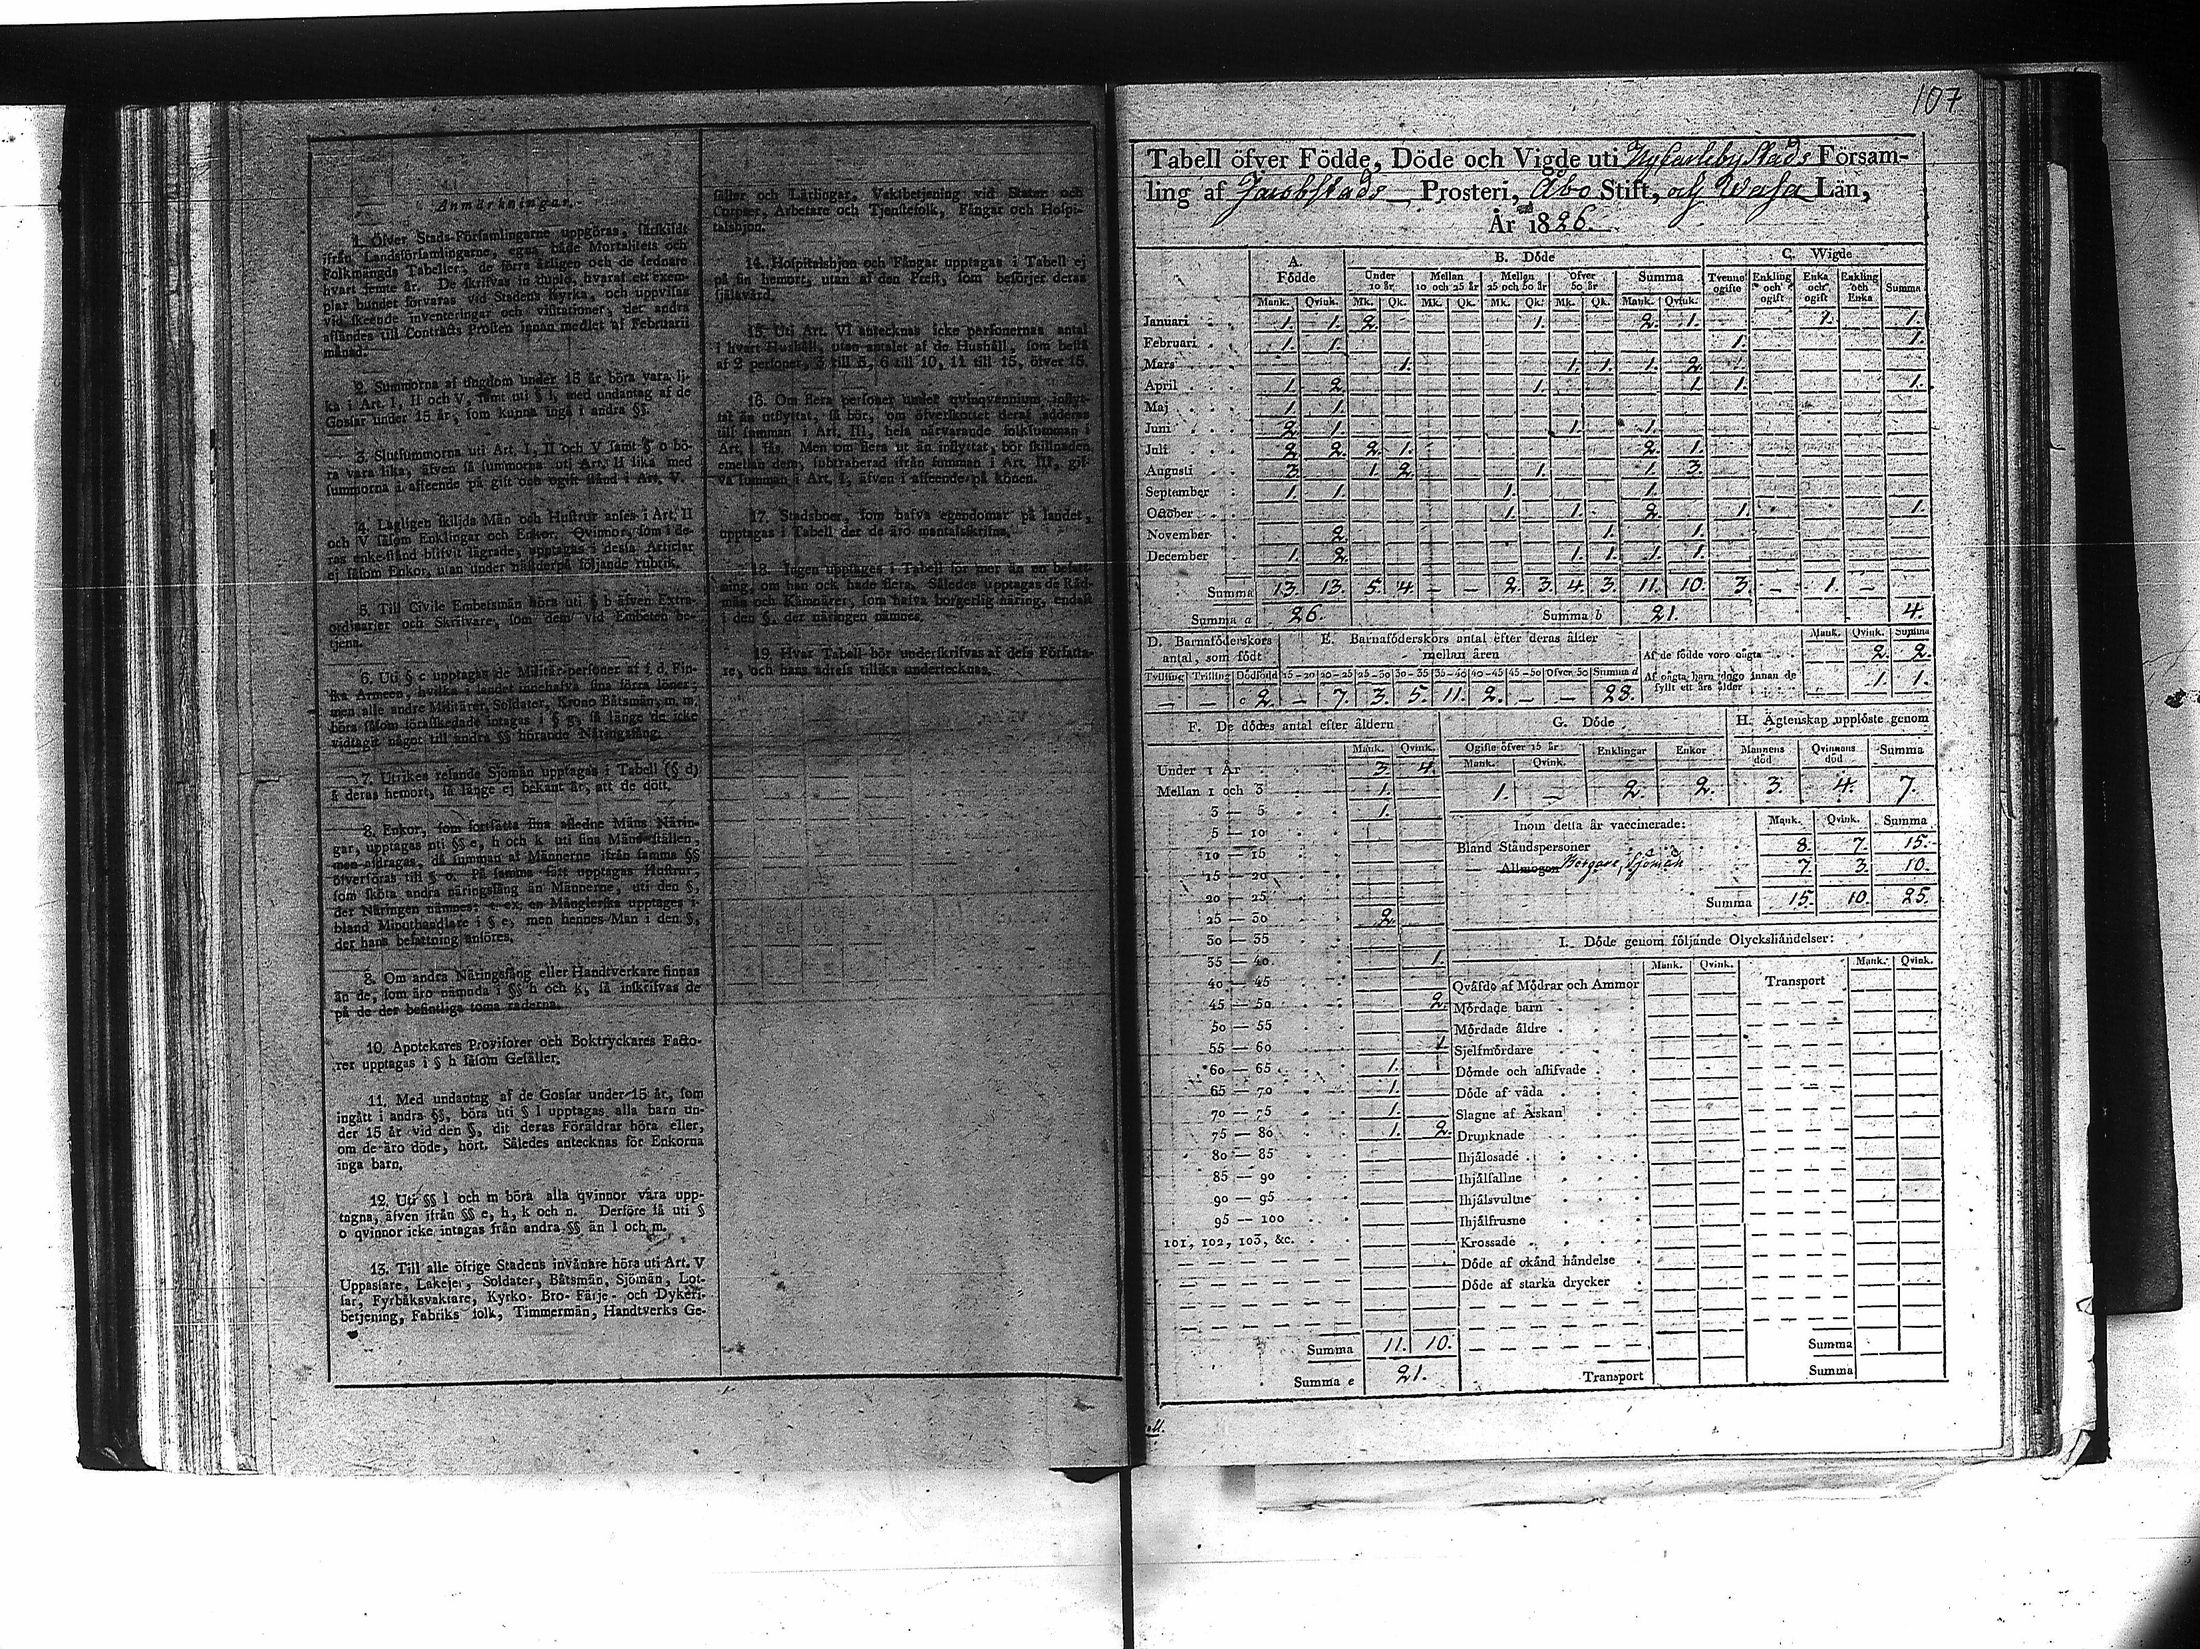 Anmärkningar.
1. Öfver Stads-Församlingarne uppgöras, särskildt
ifrån Landsförsamlingarne, egna både Mortalitets och
Folkmängds Tabeller, de förra årligen och de sednare
hvart femte år. De skrifvas in duplo, hvaraf ett exem-
plar bundet förvaras vid Stadens Kyrka, och uppvisas
vid skeende inventeringar och visitationer, det andra
afsändes till Contracts Prosten innan medlet af Februarii
månad.
2. Summorna af ungdom under 15 år böra vara li-
ka i Art. I, II och V, samt uti § l, med undantag af de
Gossar under 15 år, som kunna ingå i andra §§.
3. Slutsummorna uti Art. I, II och V samt § o bö-
ra vara lika, äfven så summorna uti Art. II lika med
summorna i afseende på gift och ogift stånd i Art. V.
4. Lagligen skiljda Män och Hustrur anses i Art. II
och V såsom Enklingar och Enkor. Qvinnor, som i de-
ras enke-stånd blifvit lägrade, upptagas i dessa Articlar
ej såsom Enkor, utan under näst derpå följande rubrik.
5. Till Civile Embetsmän höra uti § b äfven Extra-
ordinarier och Skrifvare, som dem vid Embeten be-
tjena.
6. Uti § c upptagas de Militär-personer af f. d. Fin-
ska Armeen, hvilka i landet innehafva sina förra löner;
men alle andre Militärer, Soldater, Krono Båtsmän, m. m.
böra såsom förafskedade intagas i § g, så länge de icke
vidtagit något till andra §§ hörande Näringsfång.
7. Utrikes resande Sjömän upptagas i Tabell (§ d)
å deras hemort, så länge ej bekant är, att de dött.
8. Enkor, som fortsätta sina aflednе Mäns Närin-
gar, upptagas uti §§ e, h och k uti sina Mäns ställen,
men afdragas, då summan af Männerne ifrån samma §§
öfverföras till § o. På samma sätt upptagas Hustrur,
som sköta andra näringsfång än Männerne, uti den §,
der Näringen nämnes: t. ex. en Månglerska upptages i
bland Minuthandlare i § e, men hennes Man i den §,
der hans befattning anföres.
8. Om andra Näringsfång eller Handtverkare finnas
än de, som äro nämnda i §§ h och k, så inskrifvas de
på de der befintliga toma raderna.
10. Apotekares Provisorer och Boktryckares Facto-
rer upptagas i § h såsom Gesäller.
11. Med undantag af de Gossar under 15 år, som
ingått i andra §§, böra uti § l upptagas alla barn un-
der 15 år vid den §, dit deras Föräldrar höra eller,
om de äro döde, hört. Således antecknas för Enkorna
inga barn.
12. Uti §§ l och m böra alla qvinnor vara upp-
tagna, äfven ifrån §§ e, h, k och n. Derföre få uti §
o qvinnor icke intagas från andra §§ än l och m.
13. Till alle öfrige Stadens invånare höra uti Art. V
Uppassare, Lakejer, Soldater, Båtsmän, Sjömän, Lot-
sar, Fyrbåksvaktare, Kyrko- Bro- Färje- och Dykeri-
betjening, Fabriks folk, Timmermän, Handtverks Ge-
säller och Lärlingar, Vaktbetjening vid Stater och
Corpser, Arbetare och Tjenstefolk, Fångar och Hospi-
talshjon.
14. Hospitalshjon och Fångar upptagas i Tabell ej
på sin hemort, utan af den Prest, som besörjer deras
själavård.
15. Uti Art. VI antecknas icke personernas antal
i hvart Hushåll, utan antalet af de Hushåll, som bestå
af 2 personer, 3 till 5, 6 till 10, 11 till 15, öfver 15.
16. Om flera personer under qvinqvennium inflyt-
tat än utflyttat, så bör, om öfverskottet deraf adderas
till summan i Art. III, hela närvarande folksumman i
Art. I fås. Men om flera ut än inflyttat, bör skillnaden
emellan dem, subtraherad ifrån summan i Art. III, gif-
va summan i Art. I, äfven i afseende på könen.
17. Stadsboer, som hafva egendomar på landet,
upptagas i Tabell der de äro mantalsskrifne.
18. Ingen upptages i Tabell för mer än en befatt-
ning, om han ock hade flera. Således upptagas de Råd-
män och Kämnärer, som hafva borgerlig näring, endast
i den §, der näringen nämnes.
19. Hvar Tabell bör underskrifvas af dess Författa-
re, och hans adress tillika undertecknas.
107
Tabell öfver Födde, Döde och Vigde uti Nykarleby Stads Försam-
ling af Jacobstads Prosteri, Åbo Stift, af Wasa Län,
År 1826.
A. Födde B. Döde C. Wigde
Under 10 år Mellan 10 och 25 år Mellan 25 och 50 år Öfver 50 år Summa Tvenne ogifte Enkling och ogift Enka och ogift Enkling och Enka Summa
Mank. Qvink. Mk. Qk. Mk. Qk. Mk. Qk. Mk. Qk. Mank. Qvink.
Januari 1. 1. 2. 1. 2. 1. 1. 1.
Februari 1. 1. 1. 1.
Mars 1. 1. 1. 1. 2. 1.
April 1. 2. 1. 1. 1. 1.
Maj 1. 1.
Juni 2. 1. 1. 1.
Juli 2. 2. 2. 1. 2. 1.
Augusti 3. 1. 2. 1. 1. 3.
September 1. 1. 1. 1.
October 1. 1. 2. 1. 1.
November 2. 1. 1.
December 1. 2. 1. 1. 1. 1.
Summa 13. 13. 5. 4. — — 2. 3. 4. 3. 11. 10. 3. — 1. —
Summa a 26. Summa b 21. 4.
D. Barnaföderskors antal, som födt
Tvilling Trilling Dödfödd
— — 2.
E. Barnaföderskors antal efter deras ålder mellan åren
15—20 20—25 25—30 30—35 35—40 40—45 45—50 Öfver 50 Summa d
— 7. 3. 5. 11. 2. — — 28.
Mank. Qvink. Summa
Af de födde voro oägta 2. 2.
Af oägta barn dogo innan de fyllt ett års ålder 1. 1.
F. De dödes antal efter åldern
Mank. Qvink.
Under 1 År 3. 4.
Mellan 1 och 3 1.
3 — 5 1.
5 — 10
10 — 15
15 — 20
20 — 25
25 — 30 2.
30 — 35
35 — 40 1.
40 — 45
45 — 50 2.
50 — 55
55 — 60 1.
60 — 65 1.
65 — 70 1.
70 — 75 1.
75 — 80 1. 2.
80 — 85
85 — 90
90 — 95
95 — 100
101, 102, 103, &c.
Summa 11. 10.
Summa e 21.
G. Döde
Ogifte öfver 15 år Enklingar Enkor
Mank. Qvink.
1. — 2. 2.
H. Ägtenskap upplöste genom
Mannens död Qvinnans död Summa
3. 4. 7.
Inom detta år vaccinerade: Mank. Qvink. Summa
Bland Ståndspersoner 8. 7. 15.
— Allmogen Borgare, Sjömän 7. 3. 10.
Summa 15. 10. 25.
I. Döde genom följande Olyckshändelser:
Mank. Qvink. Transport Mank. Qvink.
Qväfde af Mödrar och Ammor
Mördade barn
Mördade äldre
Sjelfmördare
Dömde och aflifvade
Döde af våda
Slagne af Åskan
Drunknade
Ihjälosade
Ihjälfallne
Ihjälsvultne
Ihjälfrusne
Krossade
Döde af okänd händelse
Döde af starka drycker
Summa
Transport Summa